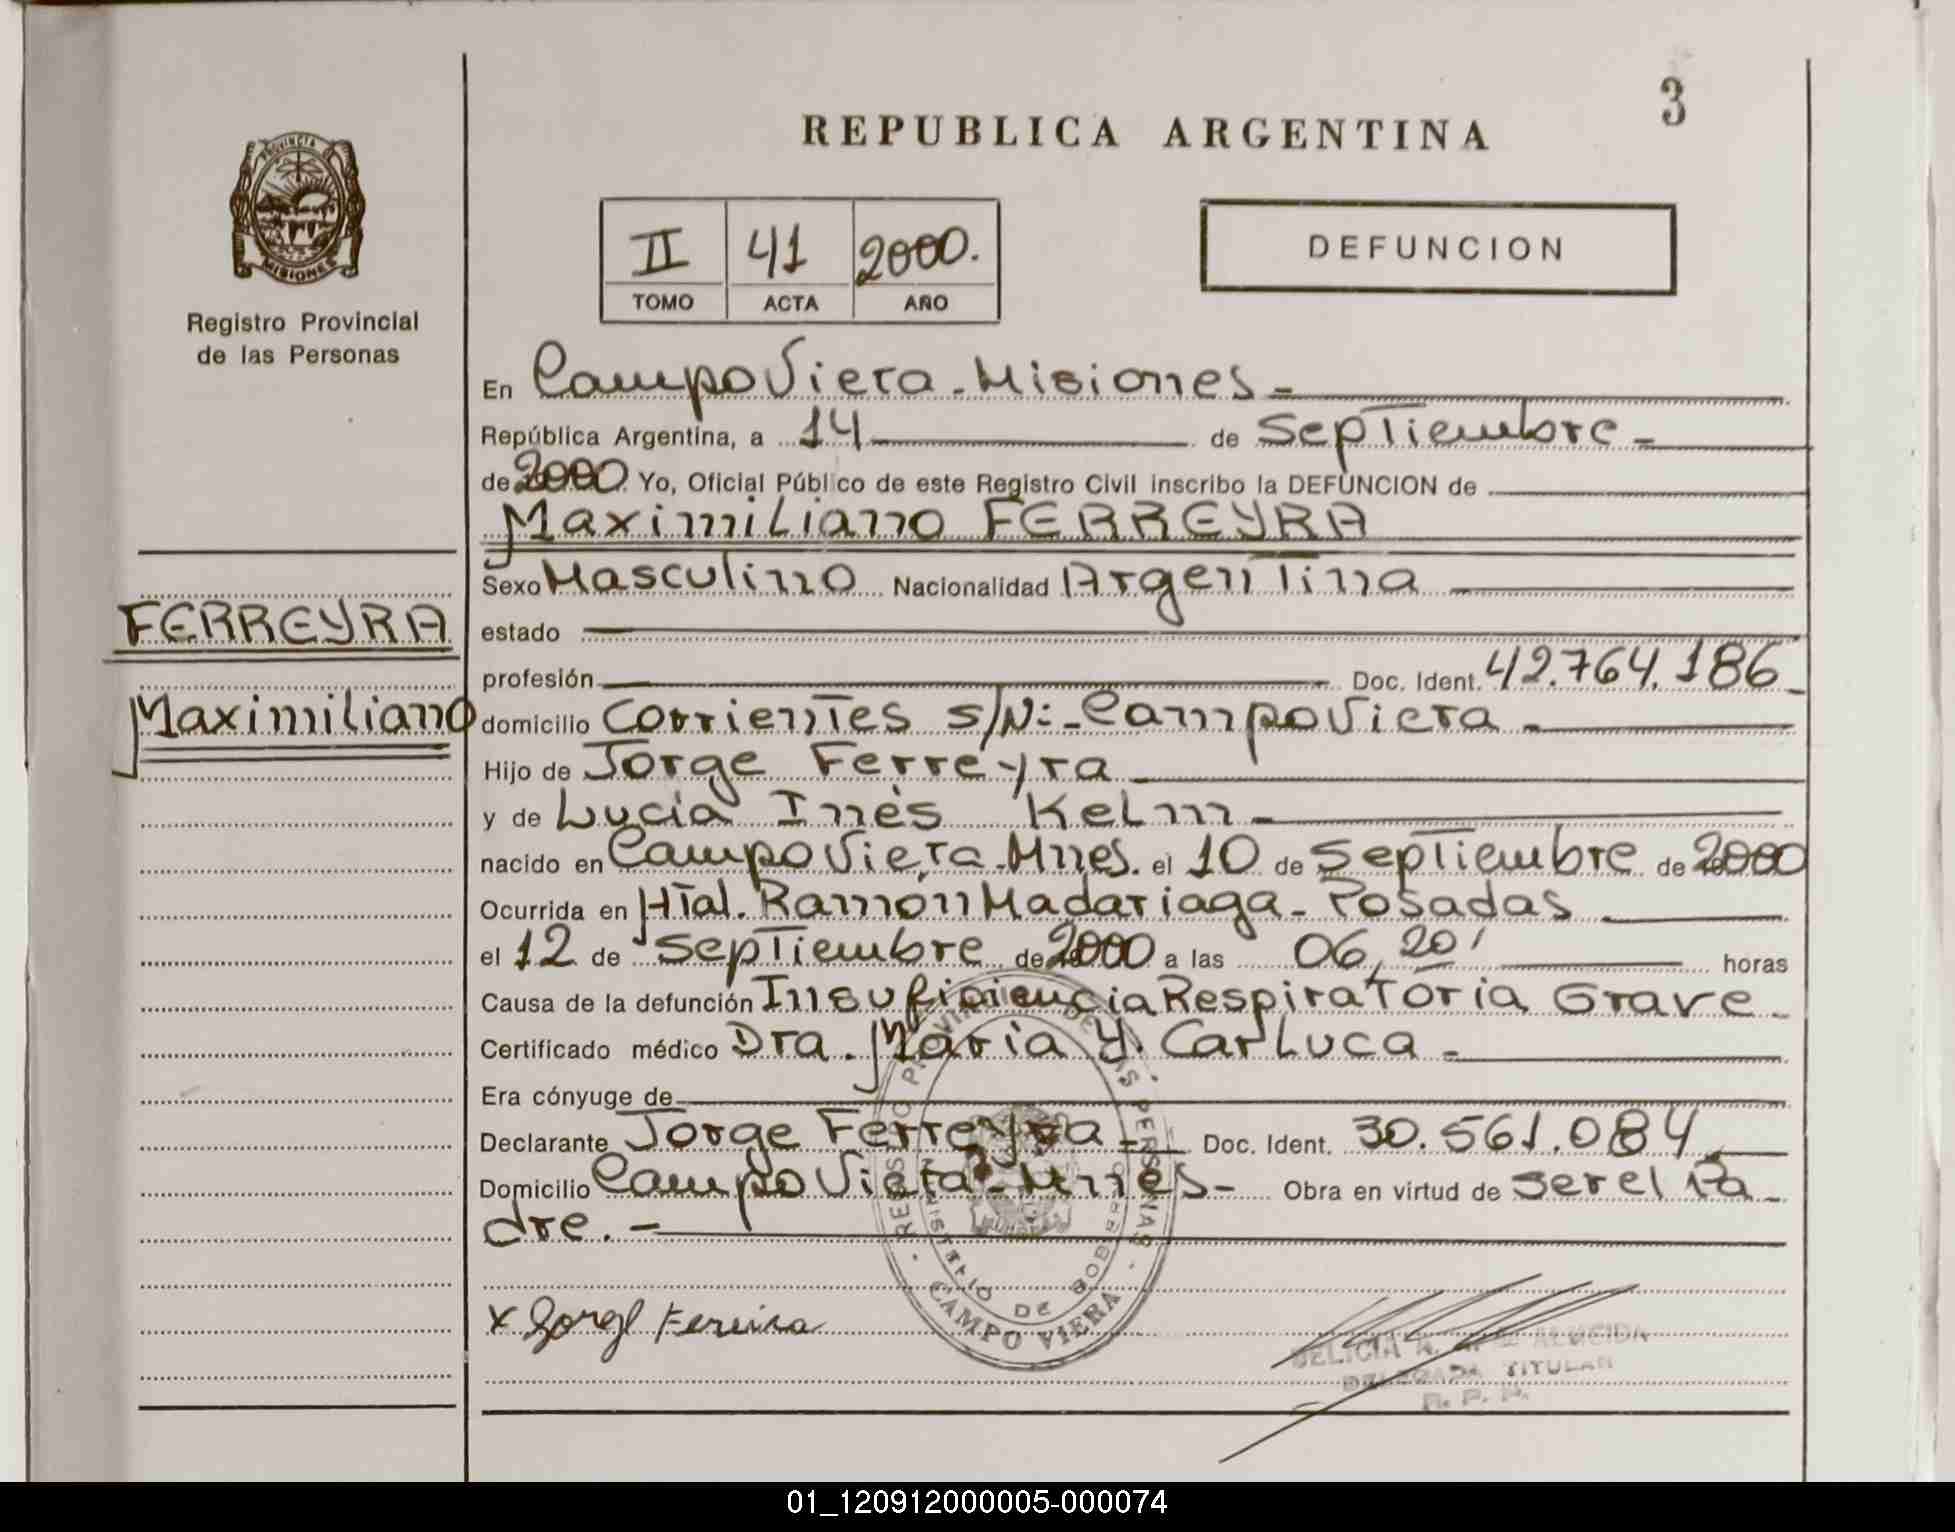 3
REPUBLICA ARGENTINA
PROVINCIA DE
MISIONES
Registro Provincial
de las Personas
II 41 2000.
TOMO ACTA AÑO
DEFUNCION
En Campo Viera - Misiones -
República Argentina, a 14 de Septiembre -
de 2000 Yo, Oficial Público de este Registro Civil inscribo la DEFUNCION de
Maximiliano FERREYRA
Sexo Masculino Nacionalidad Argentina
estado
profesión Doc. Ident. 42.764.186
domicilio Corrientes s/N:- Campo Viera -
Hijo de Jorge Ferreyra
y de Lucía Inés Kelm -
nacido en Campo Viera - Mnes. el 10 de Septiembre de 2000
Ocurrida en Htal. Ramón Madariaga - Posadas
el 12 de Septiembre de 2000 a las 06,20' horas
Causa de la defunción Insuficiencia Respiratoria Grave -
Certificado médico Dra. María Y. Carluca -
Era cónyuge de
Declarante Jorge Ferreyra - Doc. Ident. 30.561.084
Domicilio Campo Viera - Mnes - Obra en virtud de ser el Pa-
dre. -
FERREYRA
Maximiliano
x Jorge Fereira
REGISTRO PROVINCIAL DE LAS PERSONAS
MINISTERIO DE GOBIERNO
CAMPO VIERA
DELICIA ALMEIDA
DELEGADA TITULAR
R. P. P.
01_120912000005-000074